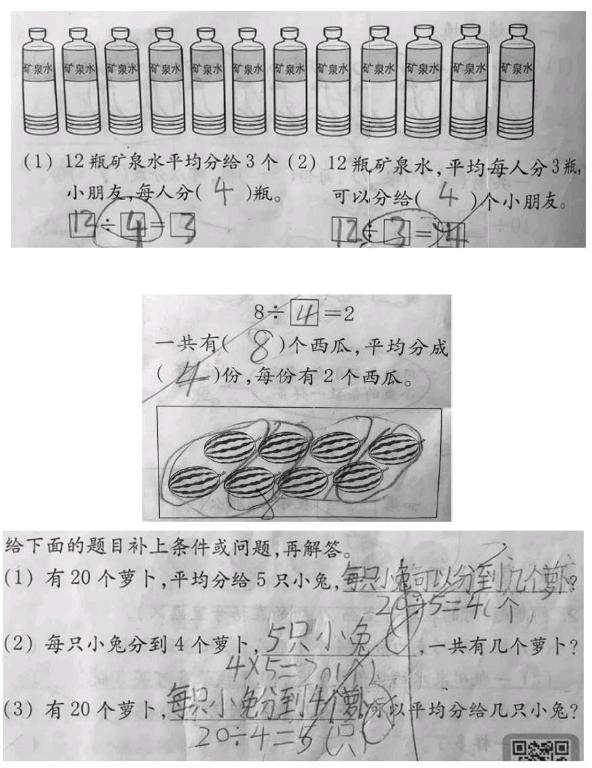 矿泉水 矿泉水 矿泉水 矿泉水 矿泉水 矿泉水 矿泉水 矿泉水 矿泉水 矿泉水 矿泉水 矿泉水
(1) 12瓶矿泉水平均分给3个 (2) 12瓶矿泉水,平均每人分3瓶,
小朋友,每人分( 4 )瓶。 可以分给( 4 )个小朋友。
12÷4=3 12÷3=4
8÷4=2
一共有( 8 )个西瓜,平均分成
( 4 )份,每份有2个西瓜。
给下面的题目补上条件或问题,再解答。
(1) 有20个萝卜,平均分给5只小兔,每只小兔可以分到几个萝卜?
20÷5=4(个
(2) 每只小兔分到4个萝卜,5只小兔,一共有几个萝卜?
4×5=20
(3) 有20个萝卜,每只小兔分到4个萝卜可以平均分给几只小兔?
20÷4=5(只)